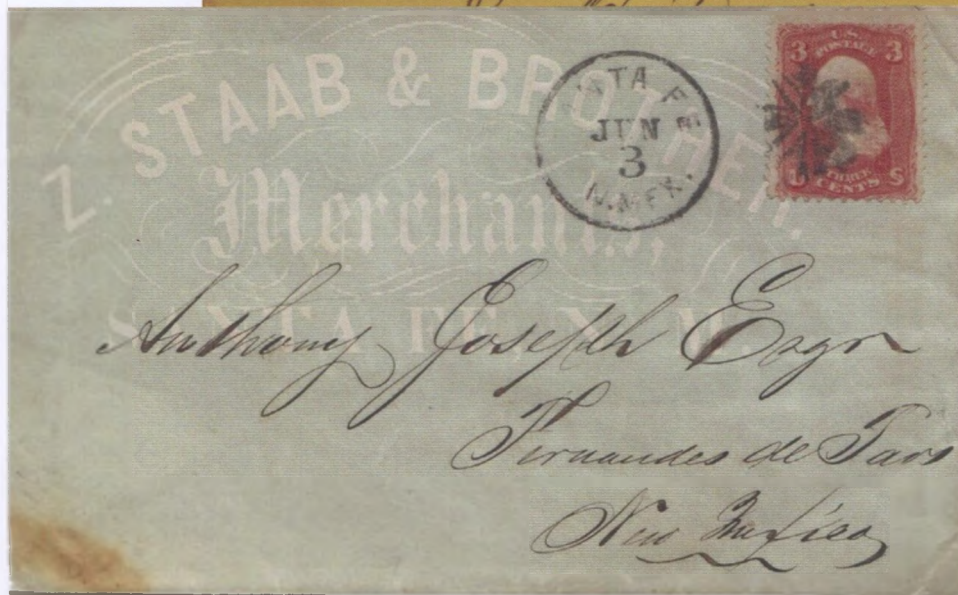 Z. STAAB & BROTHER.
Merchants,
SANTA FE, N. M.
SANTA FE
JUN
3
N. MEX.
3 U.S. 3
POSTAGE
THREE
CENTS
Anthony Joseph Esqr
Fernandes de Taos
New Mexico